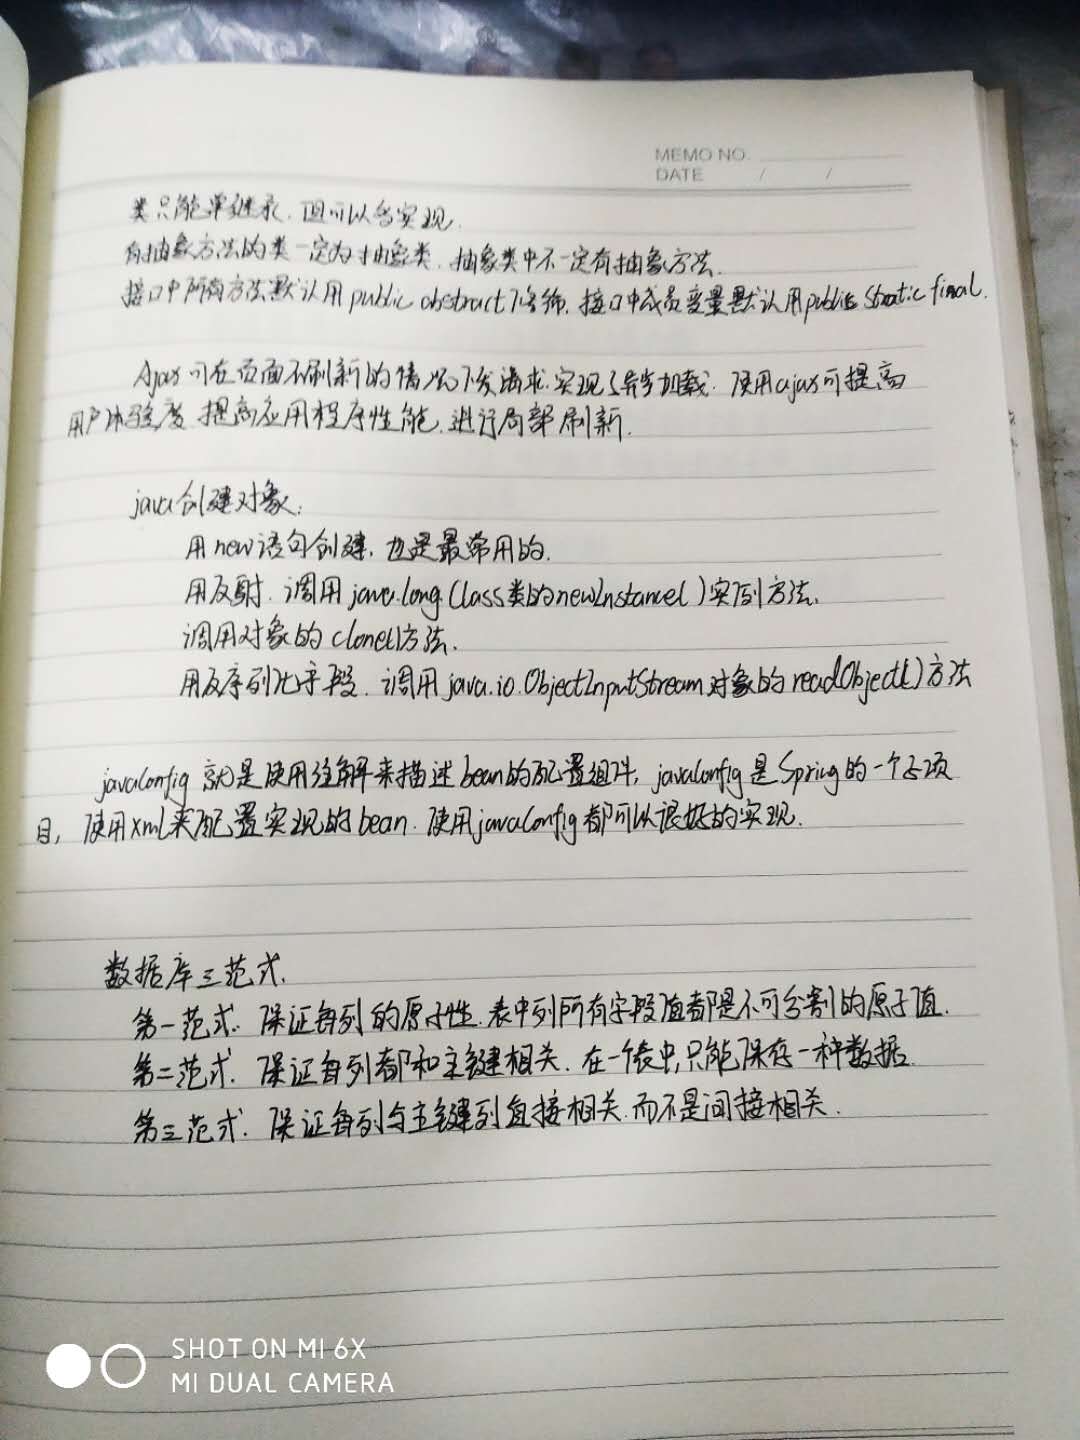 MEMO NO.
DATE / /
类只能单继承，但可以多实现.
有抽象方法的类一定为抽象类，抽象类中不一定有抽象方法.
接口中所有方法默认用public abstract修饰，接口中成员变量默认用public static final.
Ajax可在页面不刷新的情况下发请求，实现了异步加载，使用ajax可提高
用户体验度，提高应用程序性能，进行局部刷新.
java创建对象:
用new语句创建，也是最常用的.
用反射，调用java.long.Class类的newInstance()实例方法.
调用对象的clone()方法.
用反序列化手段，调用java.io.ObjectInputStream对象的readObject()方法
javaConfig就是使用注解来描述bean的配置组件，javaConfig是Spring的一个子项
目，使用xml来配置实现的bean，使用javaConfig都可以很好的实现.
数据库三范式.
第一范式. 保证每列的原子性，表中列所有字段值都是不可分割的原子值.
第二范式. 保证每列都和主键相关，在一个表中，只能保存一种数据.
第三范式. 保证每列与主键列直接相关，而不是间接相关.
SHOT ON MI 6X
MI DUAL CAMERA